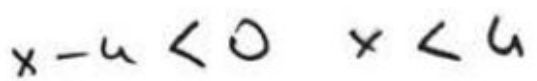 x - 4 < 0 x < 4